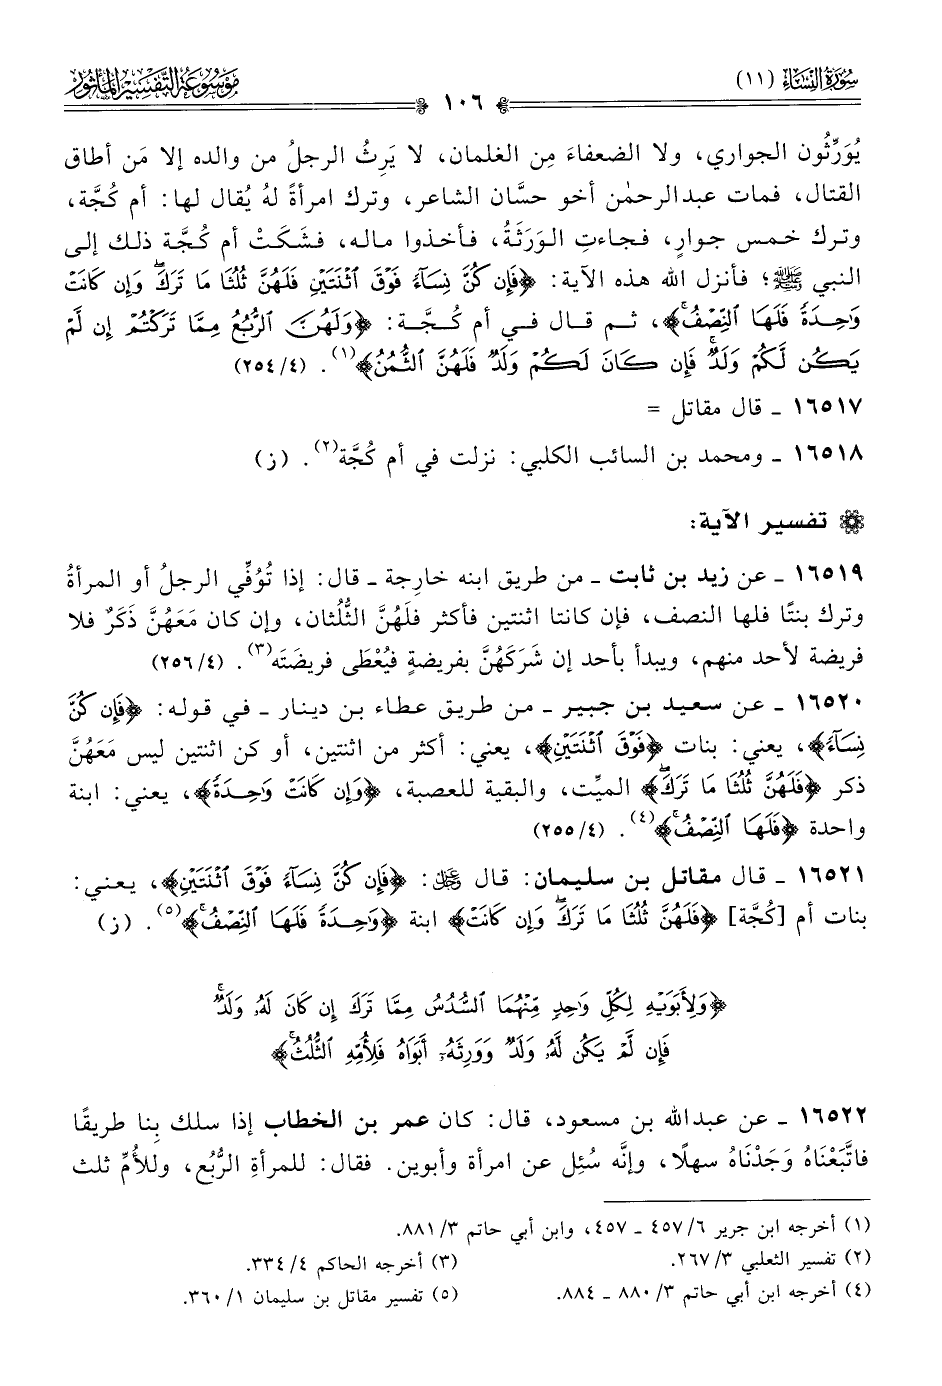 سُورَةُ النِّسَاءِ (١١)
١٠٦
مَوْسُوعَةُ التَّفْسِيرِ المَأْثُورِ
يُوَرِّثُون الجواري، ولا الضعفاءَ مِن الغلمان، لا يَرِثُ الرجلُ من والده إلا مَن أطاق
القتال، فمات عبدالرحمٰن أخو حسَّان الشاعر، وترك امرأةً لهُ يُقال لها: أم كُجَّة،
وترك خمس جوارٍ، فجاءتِ الوَرَثَةُ، فأخذوا ماله، فشَكَتْ أم كُجَّة ذلك إلى
النبي ﷺ؛ فأنزل الله هذه الآية: ﴿فَإِن كُنَّ نِسَآءً فَوْقَ ٱثْنَتَيْنِ فَلَهُنَّ ثُلُثَا مَا تَرَكَۖ وَإِن كَانَتْ
وَٰحِدَةً فَلَهَا ٱلنِّصْفُۚ﴾، ثم قال في أم كُجَّة: ﴿وَلَهُنَّ ٱلرُّبُعُ مِمَّا تَرَكْتُمْ إِن لَّمْ
يَكُن لَّكُمْ وَلَدٌۚ فَإِن كَانَ لَكُمْ وَلَدٌ فَلَهُنَّ ٱلثُّمُنُ﴾(١). (٤/٢٥٤)
١٦٥١٧ ـ قال مقاتل =
١٦٥١٨ ـ ومحمد بن السائب الكلبي: نزلت في أم كُجَّة(٢). (ز)
تفسير الآية:
١٦٥١٩ ـ عن زيد بن ثابت ـ من طريق ابنه خارجة ـ قال: إذا تُوُفِّي الرجلُ أو المرأةُ
وترك بنتًا فلها النصف، فإن كانتا اثنتين فأكثر فلَهُنَّ الثُّلُثان، وإن كان مَعَهُنَّ ذَكَرٌ فلا
فريضة لأحد منهم، ويبدأ بأحد إن شَرَكَهُنَّ بفريضةٍ فيُعْطَى فريضَتَه(٣). (٤/٢٥٦)
١٦٥٢٠ ـ عن سعيد بن جبير ـ من طريق عطاء بن دينار ـ في قوله: ﴿فَإِن كُنَّ
نِسَآءً﴾، يعني: بنات ﴿فَوْقَ ٱثْنَتَيْنِ﴾، يعني: أكثر من اثنتين، أو كن اثنتين ليس مَعَهُنَّ
ذكر ﴿فَلَهُنَّ ثُلُثَا مَا تَرَكَۖ﴾ الميِّت، والبقية للعصبة، ﴿وَإِن كَانَتْ وَٰحِدَةً﴾، يعني: ابنة
واحدة ﴿فَلَهَا ٱلنِّصْفُۚ﴾(٤). (٤/٢٥٥)
١٦٥٢١ ـ قال مقاتل بن سليمان: قال ﷻ: ﴿فَإِن كُنَّ نِسَآءً فَوْقَ ٱثْنَتَيْنِ﴾، يعني:
بنات أم [كُجَّة] ﴿فَلَهُنَّ ثُلُثَا مَا تَرَكَۖ وَإِن كَانَتْ﴾ ابنة ﴿وَٰحِدَةً فَلَهَا ٱلنِّصْفُۚ﴾(٥). (ز)
﴿وَلِأَبَوَيْهِ لِكُلِّ وَٰحِدٍ مِّنْهُمَا ٱلسُّدُسُ مِمَّا تَرَكَ إِن كَانَ لَهُۥ وَلَدٌۚ
فَإِن لَّمْ يَكُن لَّهُۥ وَلَدٌ وَوَرِثَهُۥٓ أَبَوَاهُ فَلِأُمِّهِ ٱلثُّلُثُۚ﴾
١٦٥٢٢ ـ عن عبدالله بن مسعود، قال: كان عمر بن الخطاب إذا سلك بِنا طريقًا
فاتَّبَعْنَاهُ وَجَدْنَاهُ سهلًا، وإنَّه سُئِل عن امرأة وأبوين. فقال: للمرأةِ الرُّبُع، وللأُمِّ ثلث
(١) أخرجه ابن جرير ٦/٤٥٧ ـ ٤٥٧، وابن أبي حاتم ٣/٨٨١.
(٢) تفسير الثعلبي ٣/٢٦٧. (٣) أخرجه الحاكم ٤/٣٣٤.
(٤) أخرجه ابن أبي حاتم ٣/٨٨٠ ـ ٨٨٤. (٥) تفسير مقاتل بن سليمان ١/٣٦٠.